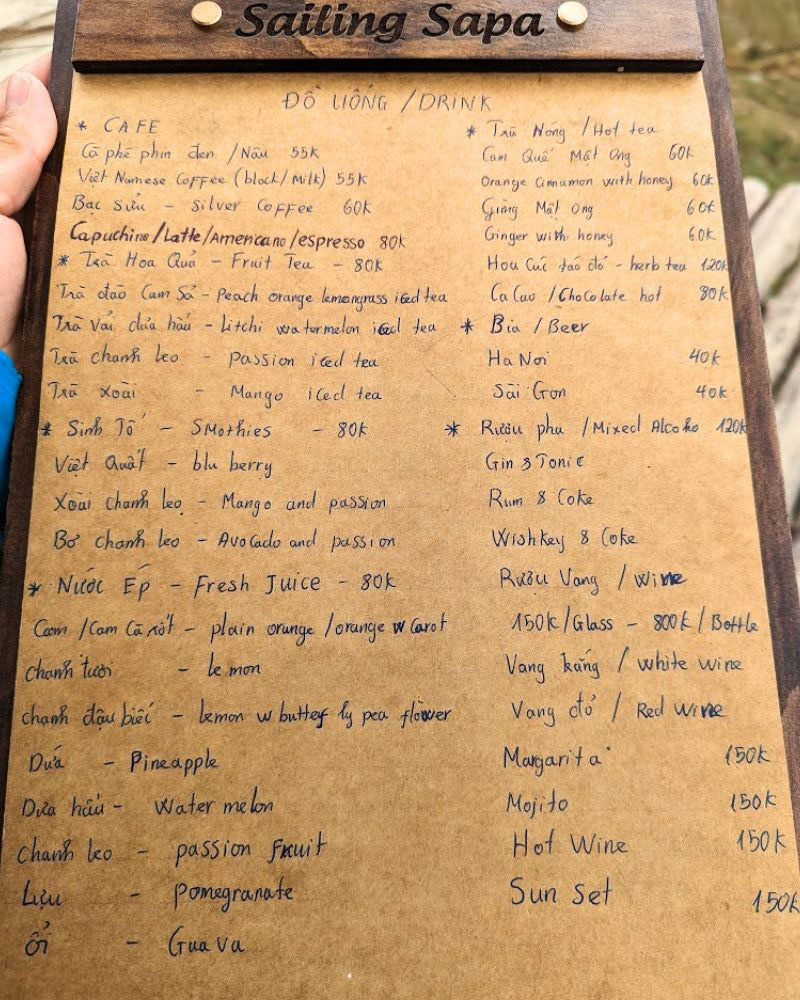 Sailing Sapa
ĐỒ UỐNG / DRINK
* CAFE
Cà phê phin đen / Nâu 55K
Việt Namese Coffee (black/Milk) 55K
Bạc sửu - silver Coffee 60K
Capuchino/Latte/Americano/espresso 80k
* Trà Hoa Quả - Fruit Tea - 80K
Trà đào Cam Sả - Peach orange lemongrass iced tea
Trà Vải dưa hấu - Litchi watermelon iced tea
Trà chanh leo - passion iced tea
Trà xoài - Mango iced tea
* Sinh Tố - SMothies - 80K
Việt Quất - blu berry
Xoài chanh leo - Mango and passion
Bơ chanh leo - Avocado and passion
* Nước Ép - Fresh Juice - 80k
Cam / Cam Cà rốt - plain orange / orange w Carot
chanh tươi - lemon
chanh đậu biếc - lemon w butterfly pea flower
Dứa - Pineapple
Dưa hấu - Water melon
chanh leo - passion fruit
Lựu - Pomegranate
ổi - Guava
* Trà Nóng / Hot tea
Cam Quế Mật Ong 60k
Orange Cinnamon with honey 60k
Gừng Mật Ong 60k
Ginger with honey 60k
Hoa Cúc táo đỏ - herb tea 120k
Ca Cao / Chocolate hot 80k
* Bia / Beer
Ha Noi 40k
Sài Gòn 40k
* Rượu pha / Mixed Alcoho 120k
Gin & Tonic
Rum & Coke
Wishkey & Coke
Rượu Vang / wine
150k/Glass - 800k/Bottle
Vang trắng / white wine
Vang đỏ / Red wine
Margarita 150k
Mojito 150k
Hot Wine 150k
Sun Set 150k